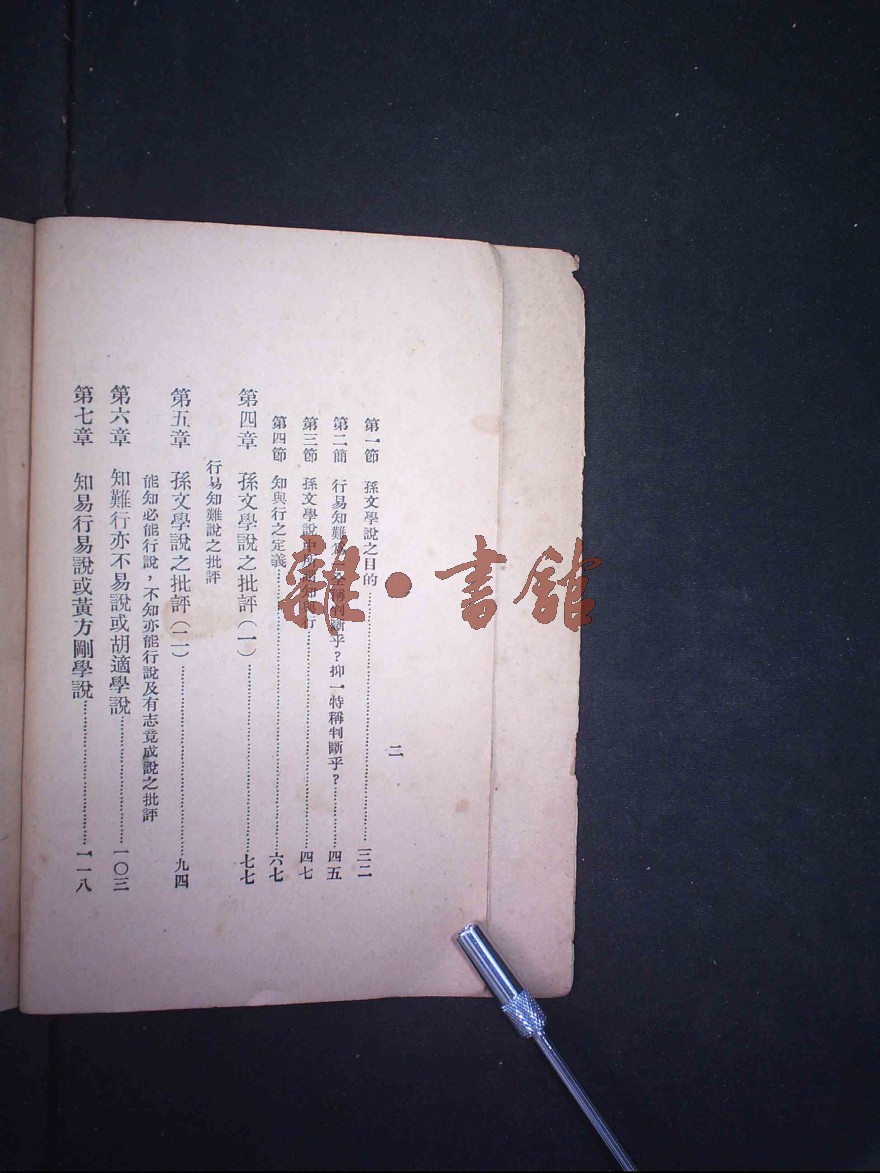 二
第一節　孫文學說之目的……………三二
第二簡　行易知難為一全稱判斷乎？抑一特稱判斷乎？……………四五
第三節　孫文學說中所謂知與行……………四七
第四節　知與行之定義……………六七
第四章　孫文學說之批評（一）……………七七
行易知難說之批評
第五章　孫文學說之批評（二）……………九四
能知必能行說，不知亦能行說及有志竟成說之批評
第六章　知難行亦不易說或胡適學說……………一〇三
第七章　知易行易說或黃方剛學說……………一一八
雜·書館